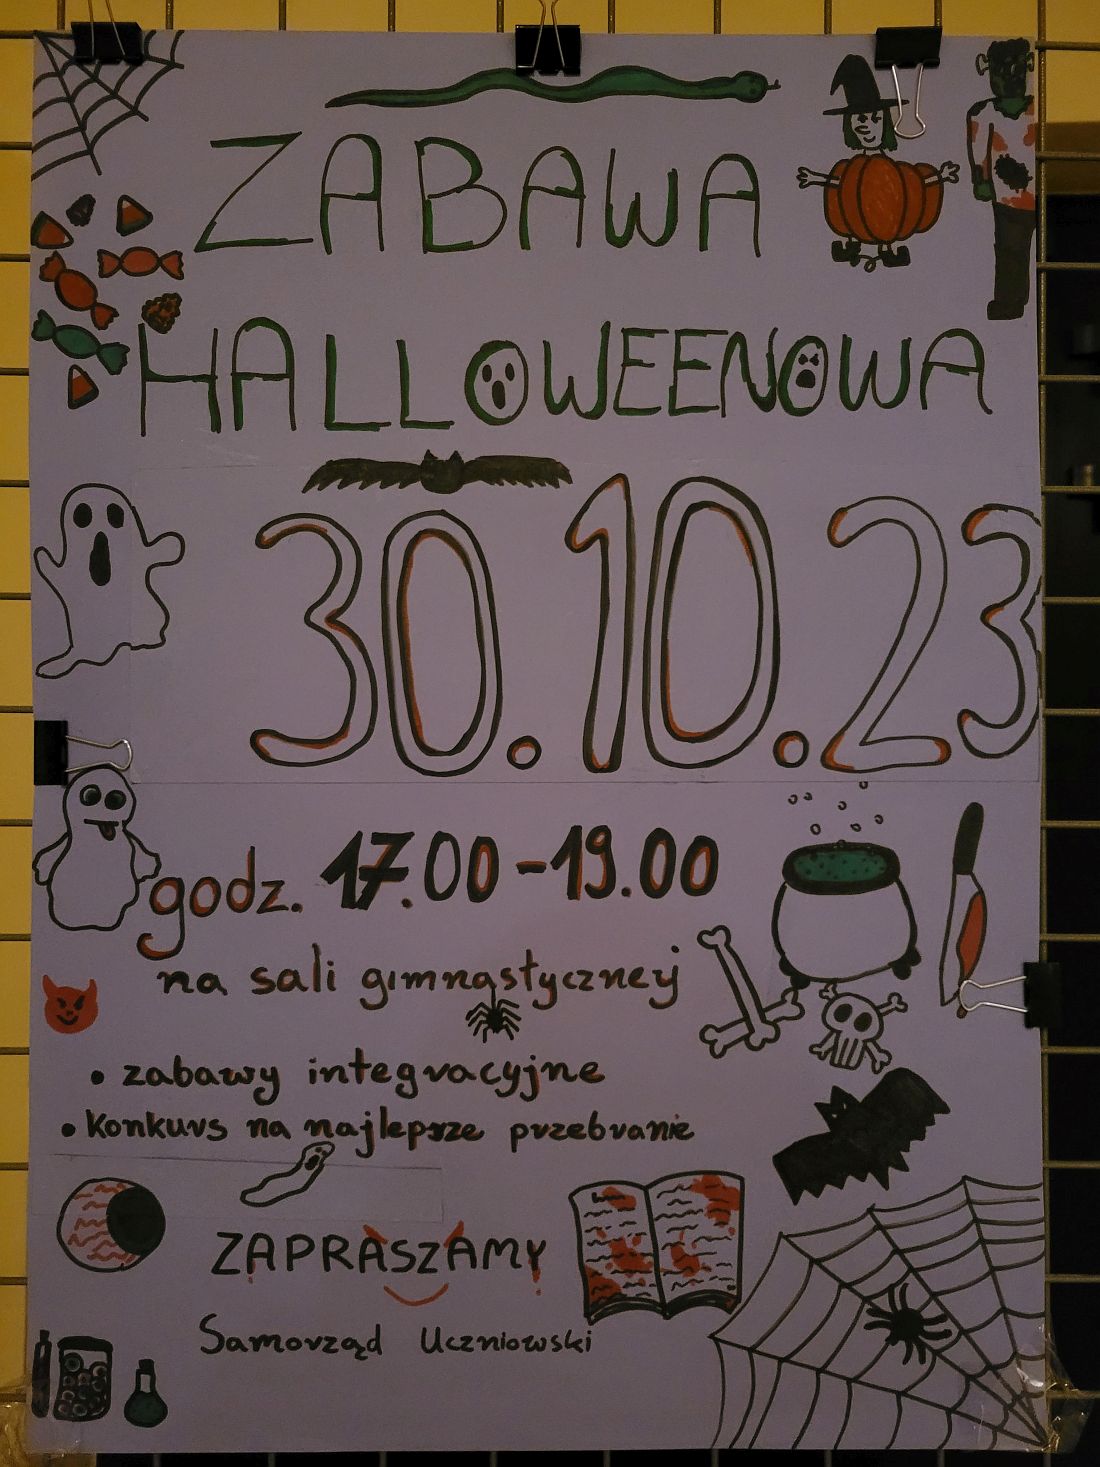 ZABAWA
HALLOWEENOWA
30.10.23
godz. 17.00-19.00
na sali gimnastycznej
• zabawy integracyjne
• Konkurs na najlepsze przebranie
ZAPRASZAMY
Samorząd Uczniowski